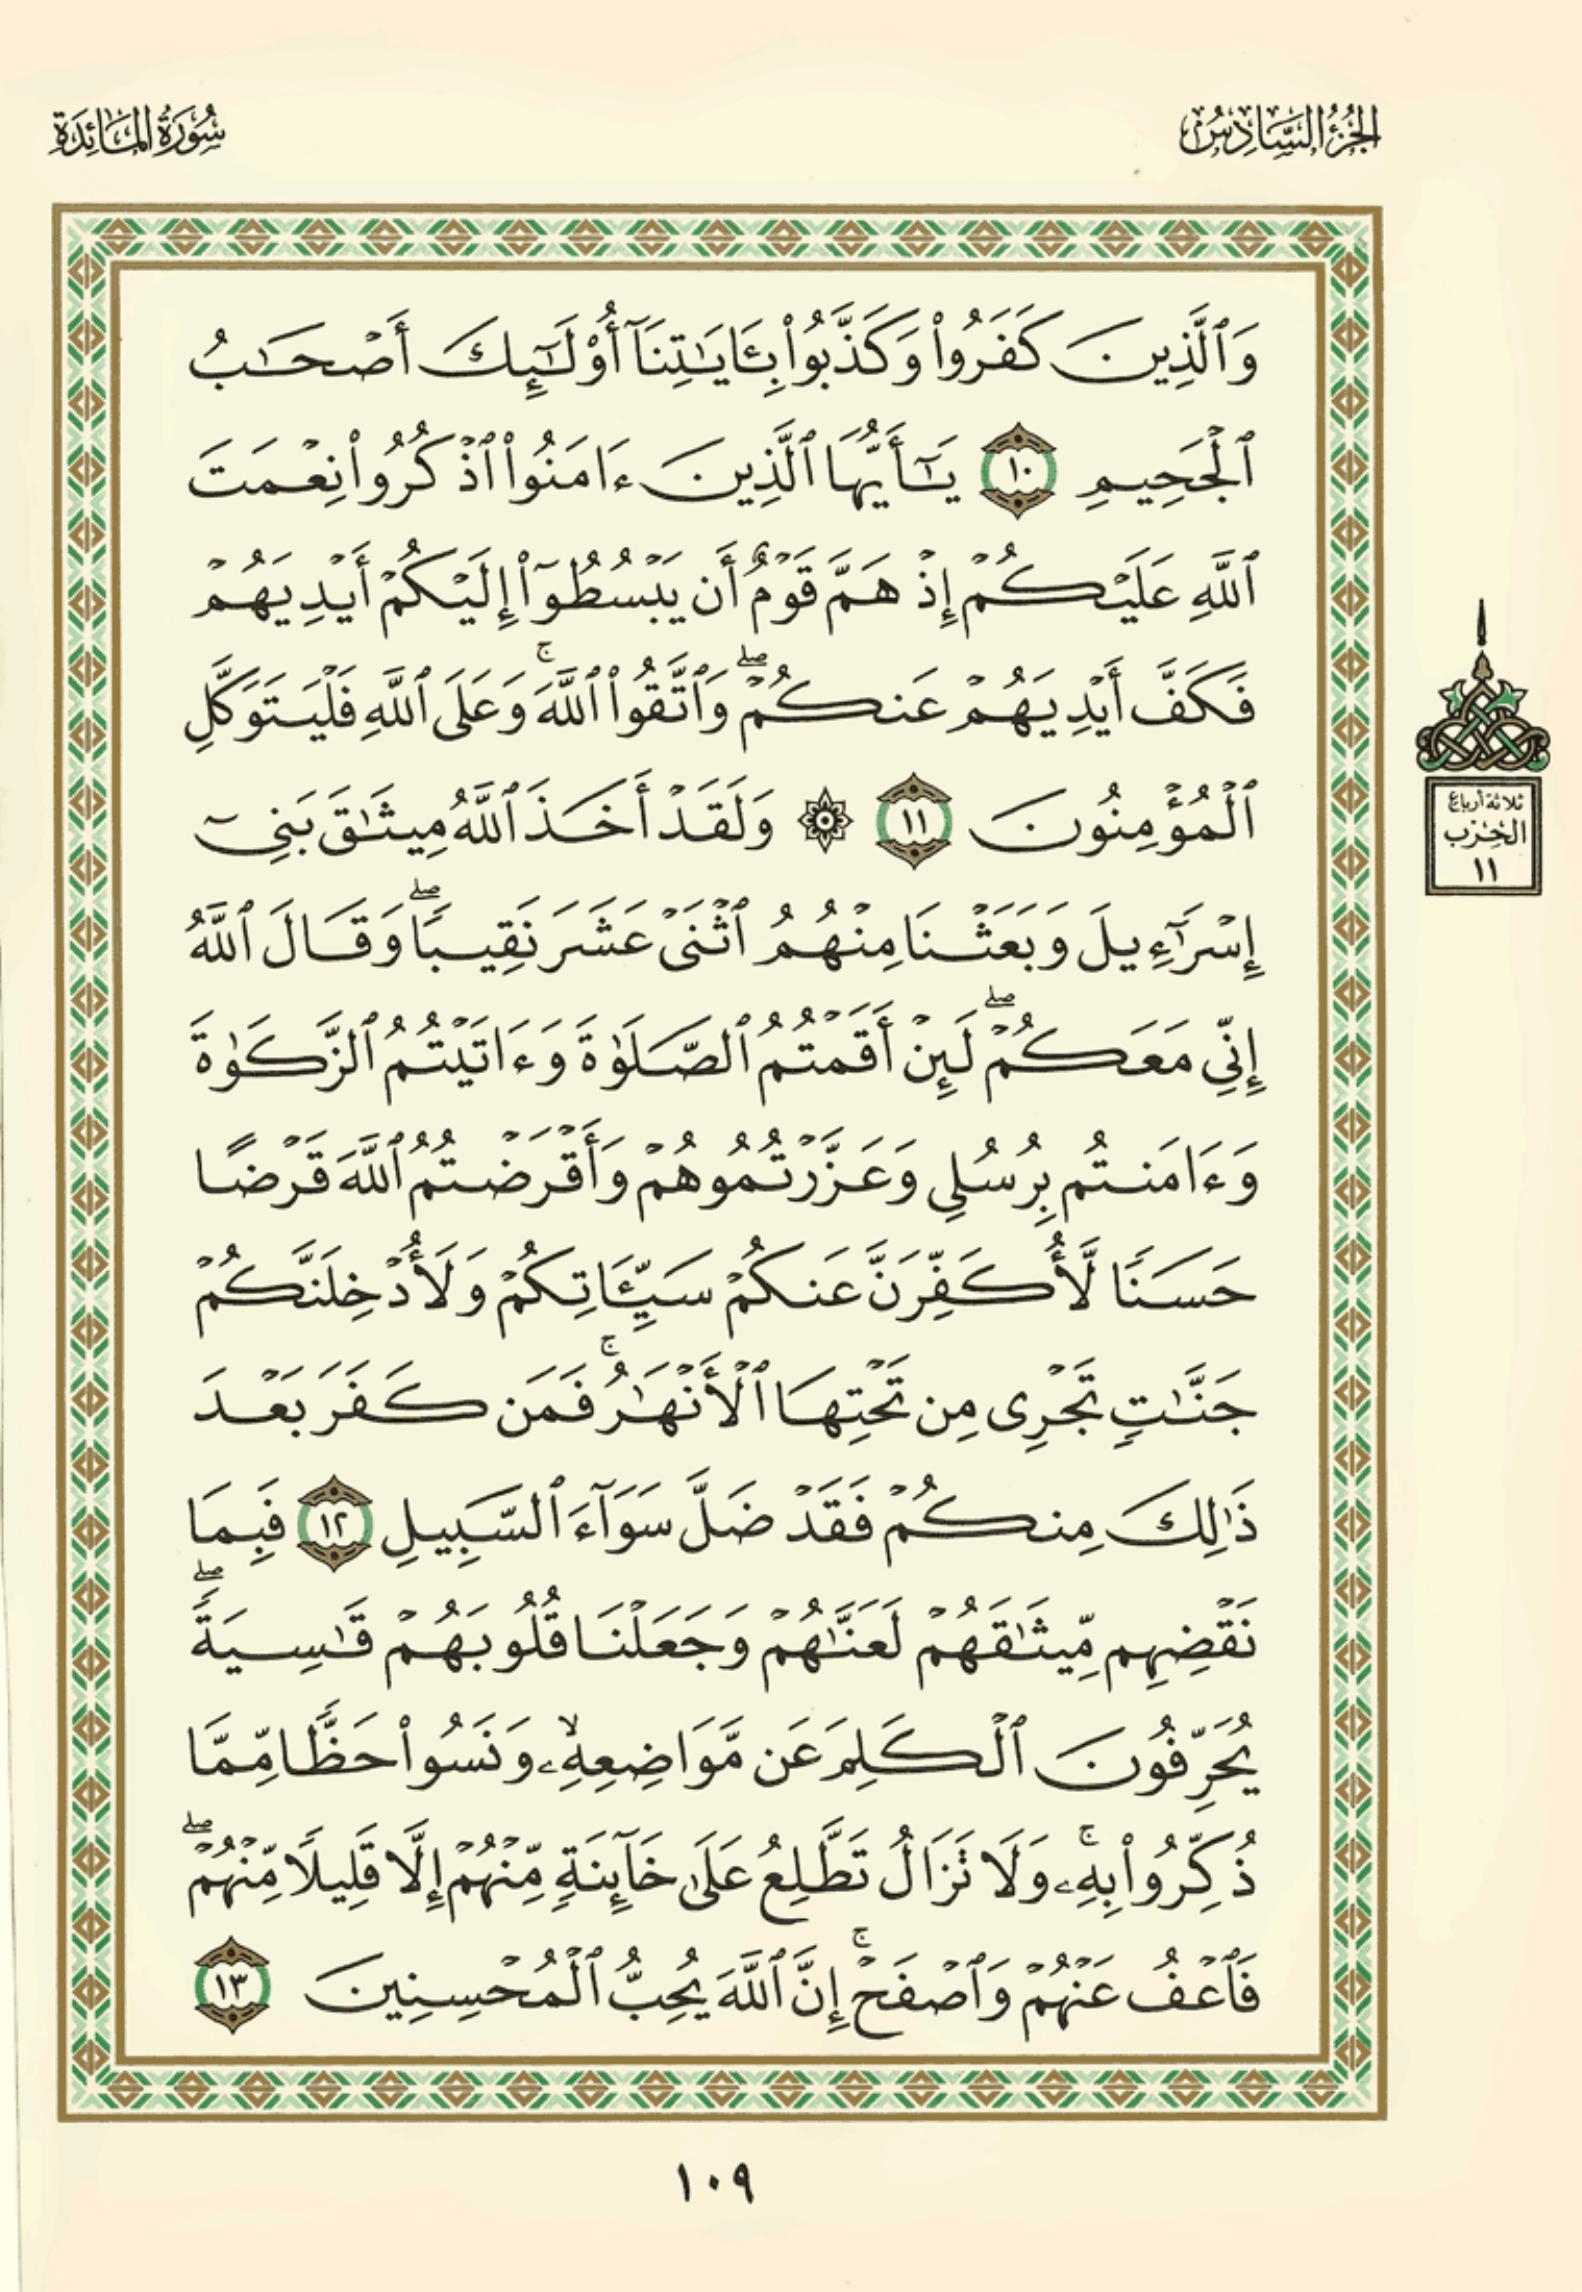 الجزء السادس
سورة المائدة
وَٱلَّذِينَ كَفَرُوا۟ وَكَذَّبُوا۟ بِـَٔايَـٰتِنَآ أُو۟لَـٰٓئِكَ أَصْحَـٰبُ
ٱلْجَحِيمِ ١٠ يَـٰٓأَيُّهَا ٱلَّذِينَ ءَامَنُوا۟ ٱذْكُرُوا۟ نِعْمَتَ
ٱللَّهِ عَلَيْكُمْ إِذْ هَمَّ قَوْمٌ أَن يَبْسُطُوٓا۟ إِلَيْكُمْ أَيْدِيَهُمْ
فَكَفَّ أَيْدِيَهُمْ عَنكُمْ ۖ وَٱتَّقُوا۟ ٱللَّهَ ۚ وَعَلَى ٱللَّهِ فَلْيَتَوَكَّلِ
ٱلْمُؤْمِنُونَ ١١ ۞ وَلَقَدْ أَخَذَ ٱللَّهُ مِيثَـٰقَ بَنِىٓ
ثلاثة أرباع
الحزب
١١
إِسْرَٰٓءِيلَ وَبَعَثْنَا مِنْهُمُ ٱثْنَىْ عَشَرَ نَقِيبًا ۖ وَقَالَ ٱللَّهُ
إِنِّى مَعَكُمْ ۖ لَئِنْ أَقَمْتُمُ ٱلصَّلَوٰةَ وَءَاتَيْتُمُ ٱلزَّكَوٰةَ
وَءَامَنتُم بِرُسُلِى وَعَزَّرْتُمُوهُمْ وَأَقْرَضْتُمُ ٱللَّهَ قَرْضًا
حَسَنًا لَّأُكَفِّرَنَّ عَنكُمْ سَيِّـَٔاتِكُمْ وَلَأُدْخِلَنَّكُمْ
جَنَّـٰتٍ تَجْرِى مِن تَحْتِهَا ٱلْأَنْهَـٰرُ ۚ فَمَن كَفَرَ بَعْدَ
ذَٰلِكَ مِنكُمْ فَقَدْ ضَلَّ سَوَآءَ ٱلسَّبِيلِ ١٢ فَبِمَا
نَقْضِهِم مِّيثَـٰقَهُمْ لَعَنَّـٰهُمْ وَجَعَلْنَا قُلُوبَهُمْ قَـٰسِيَةً ۖ
يُحَرِّفُونَ ٱلْكَلِمَ عَن مَّوَاضِعِهِۦ ۙ وَنَسُوا۟ حَظًّا مِّمَّا
ذُكِّرُوا۟ بِهِۦ ۚ وَلَا تَزَالُ تَطَّلِعُ عَلَىٰ خَآئِنَةٍ مِّنْهُمْ إِلَّا قَلِيلًا مِّنْهُمْ ۖ
فَٱعْفُ عَنْهُمْ وَٱصْفَحْ ۚ إِنَّ ٱللَّهَ يُحِبُّ ٱلْمُحْسِنِينَ ١٣
١٠٩